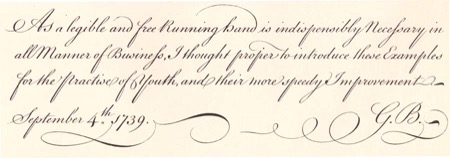 As a legible and free Running hand is indispensibly Necessary in
all Manner of Business, I thought proper to introduce these Examples
for the Practise of Youth, and their more speedy Improvement
September 4th. 1739. G.B.